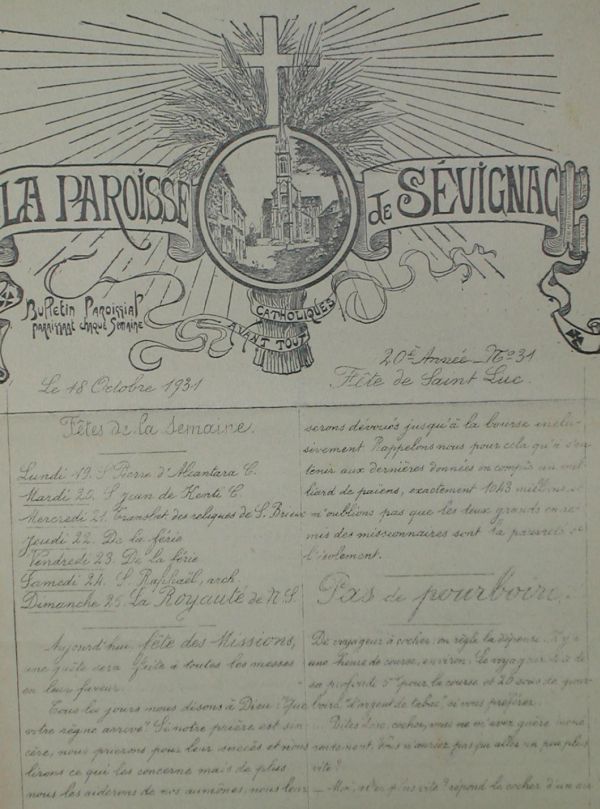 LA PAROISSE de SÉVIGNAC
Bulletin Paroissial
paraissant chaque Semaine
CATHOLIQUES
AVANT TOUT
20e Année - No 31
Le 18 Octobre 1931
Fête de Saint Luc.
Fêtes de la Semaine.
Lundi 19. S Pierre d'Alcantara C.
Mardi 20. S Jean de Kenti C.
Mercredi 21. Translat. des reliques de S. Brieuc
Jeudi 22. De la férie
Vendredi 23. De la férie
Samedi 24. S. Raphaël, arch.
Dimanche 25. La Royauté de N.S.
Aujourd'hui, fête des Missions,
une quête sera faite à toutes les messes
en leur faveur.
Tous les jours nous disons à Dieu: "Que
votre règne arrive". Si notre prière est sin-
cère, nous prierons pour leur succès et nous
lirons ce qui les concerne mais de plus
nous les aiderons de nos aumônes, nous leur
serons dévoués jusqu'à la bourse inclu-
sivement. Rappelons nous pour cela qu'à s'en
tenir aux dernières données on compte un mil-
liard de païens, exactement 1043 millions, et
n'oublions pas que les deux grands enne-
mis des missionnaires sont la pauvreté et
l'isolement.
Pas de pourboire.
De voyageur à cocher, on règle la dépense. Il y a
une heure de course, environ. Le voyageur tire de
sa profonde 5 pour la course et 20 sous de pour-
boire, "d'argent de tabac" si vous préférez.
Dites donc, cocher, vous ne m'avez guère mené
rondement. Vous n'auriez pas pu aller un peu plus
vite?
— Moi, répond le cocher d'un air